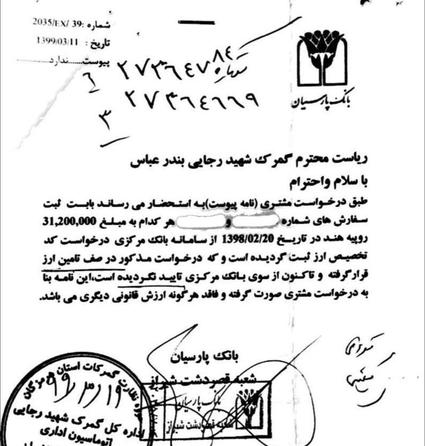 شماره :2035/EX/ 39
تاریخ : 1399/03/11
پیوست.......ندارد......
۲۷۳۶۴۷۸۴
۲۷۳۶۴۶۶۹
بانک پارسیان
ریاست محترم گمرک شهید رجایی بندر عباس
با سلام واحترام
طبق درخواست مشتری (نامه پیوست)به استحضار می رساند بابت ثبت
سفارش های شماره و هر کدام به مبلغ 31,200,000
روپیه هند در تاریخ 1398/02/20 از سامانه بانک مرکزی درخواست کد
تخصیص ارز ثبت گردیده است و که درخواست مذکور در صف تامین ارز
قرارگرفته و تاکنون از سوی بانک مرکزی تایید نگردیده است،این نامه بنا
به درخواست مشتری صورت گرفته و فاقد هرگونه ارزش قانونی دیگری می باشد.
بانک پارسیان
شعبه قصردشت شیراز
بانک پارسیان
شعبه قصردشت شیراز
نظارت گمرکات استان هرمزگان
۹۹/۳/۱۹
اداره کل گمرک شهید رجایی
اتوماسیون اداری